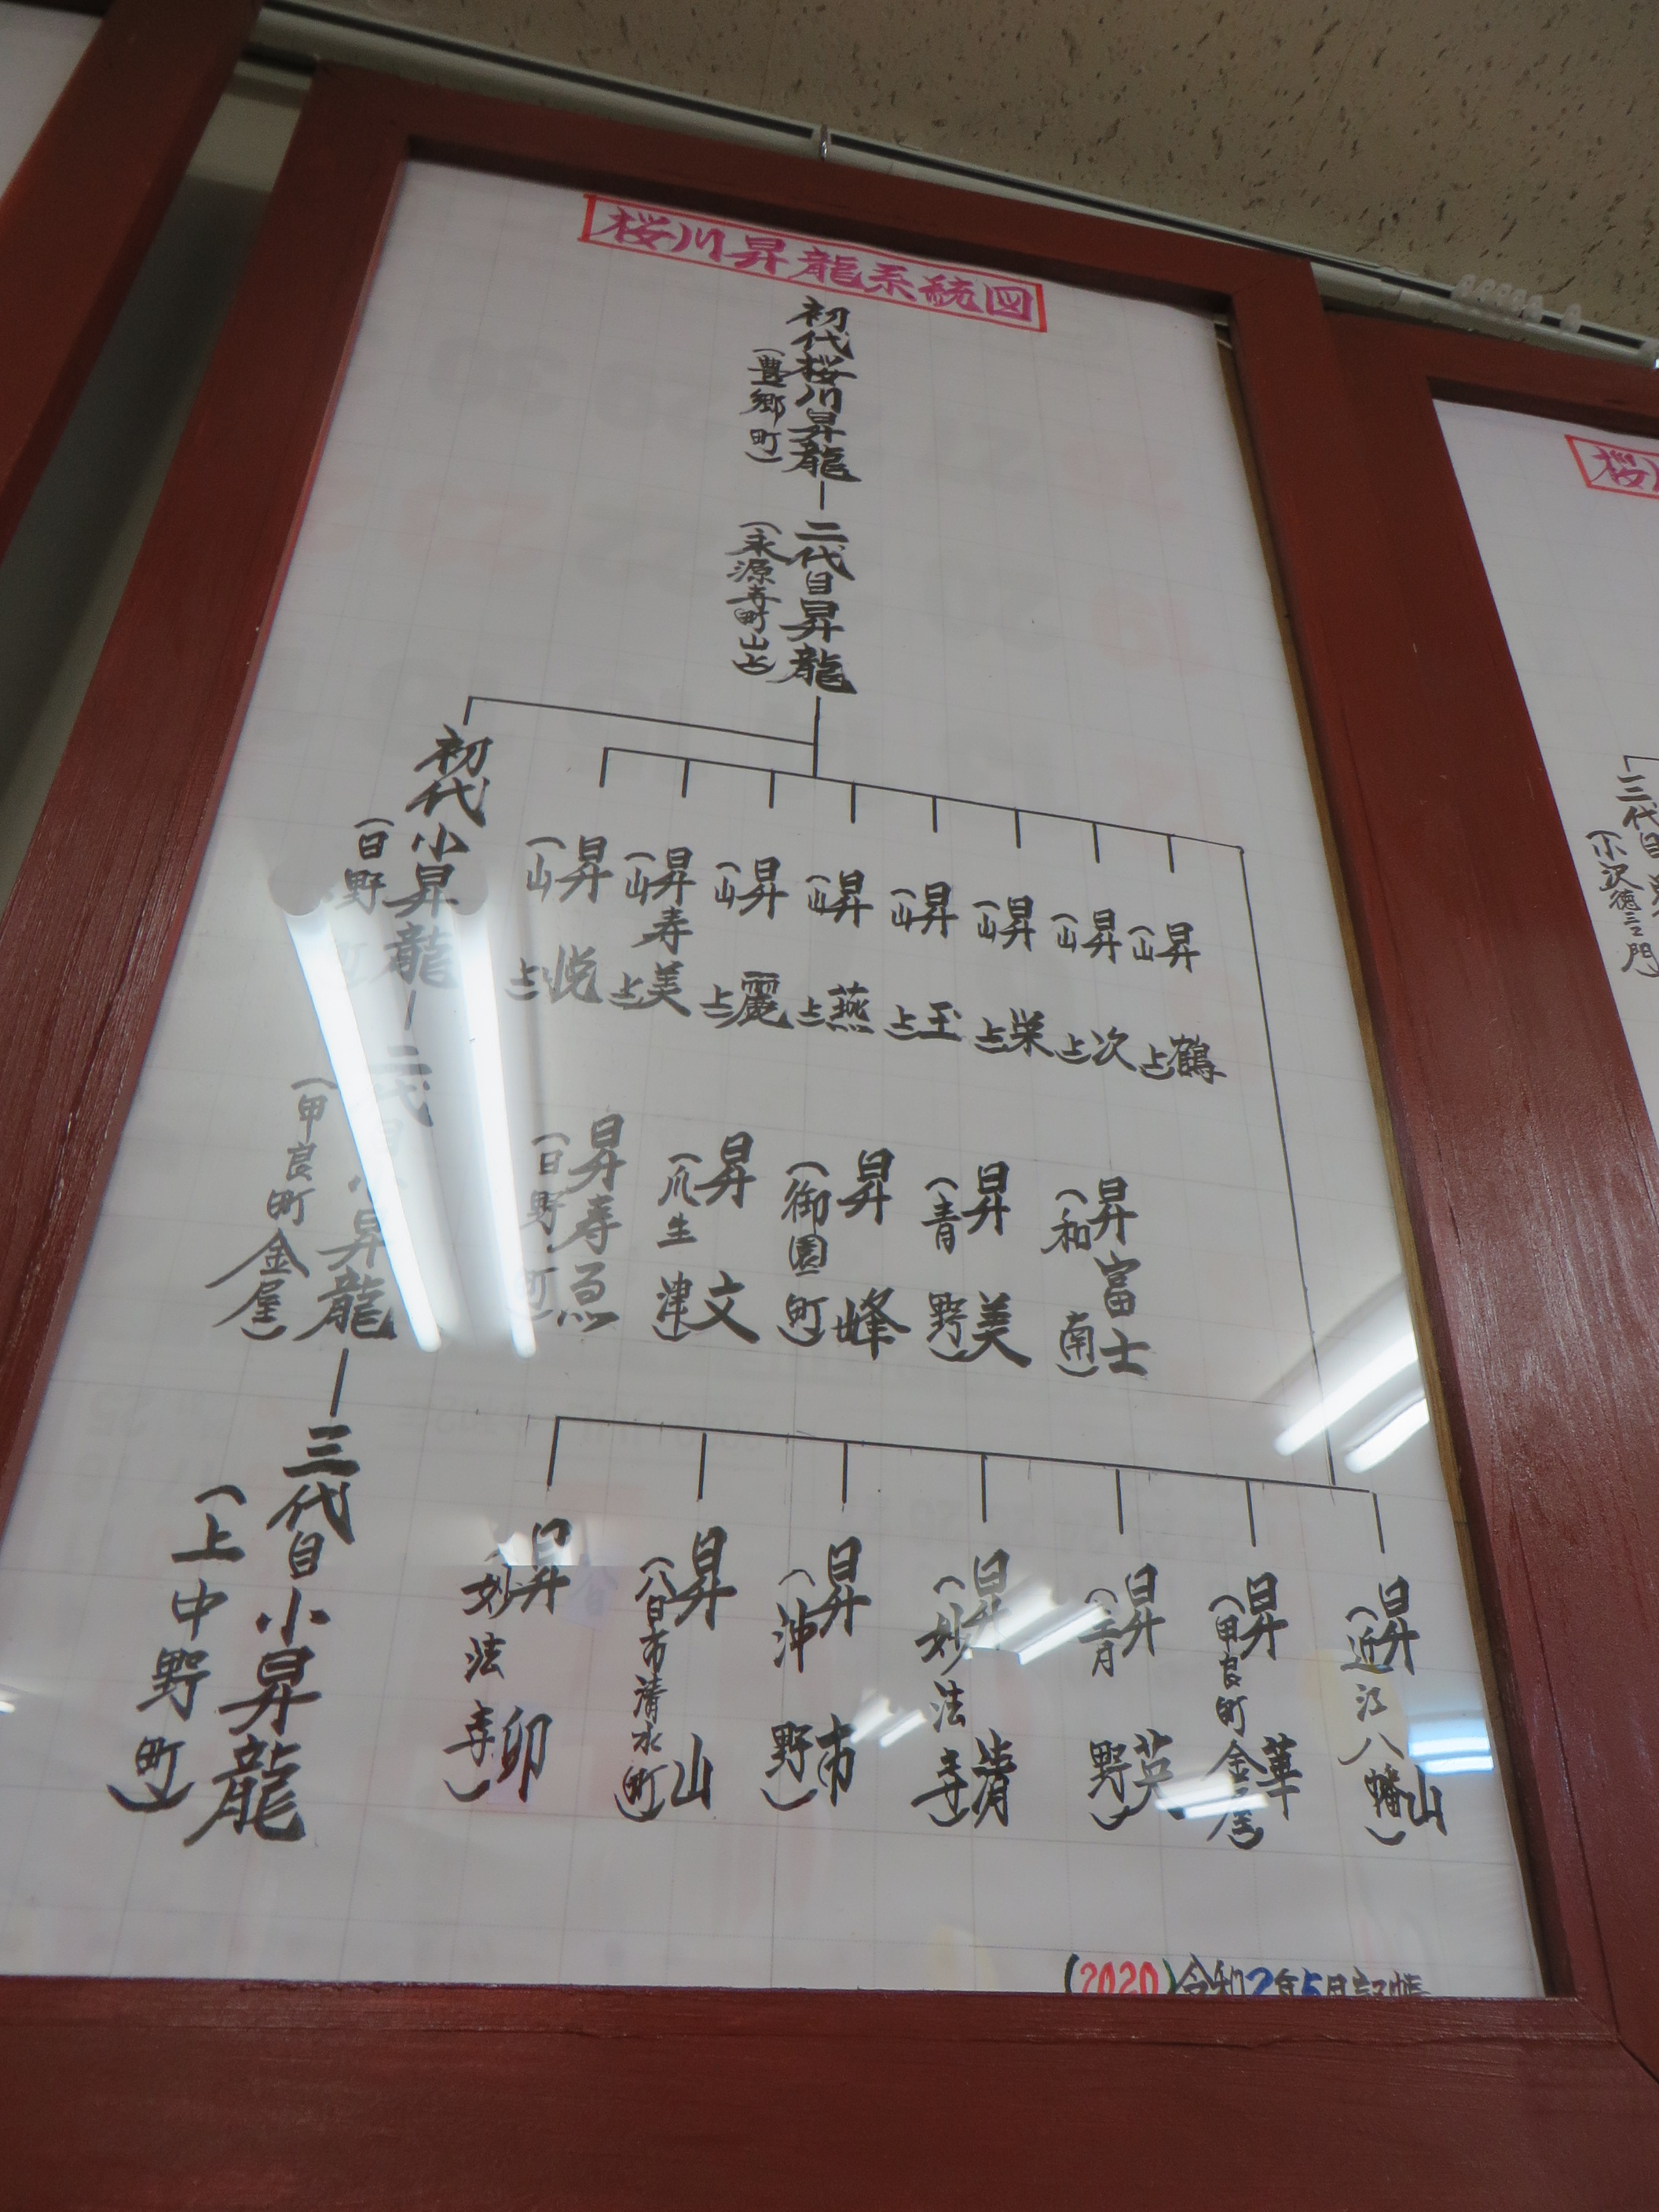 桜川昇龍系統図
初代桜川昇龍
(豊郷町)
二代目昇龍
(永源寺町山上)
昇鶴
(山上)
昇次
(山上)
昇栄
(山上)
昇玉
(山上)
昇燕
(山上)
昇麗
(山上)
昇寿美
(山上)
昇悦
(山上)
昇富士
(和南)
昇美
(青野)
昇峰
(御園町)
昇文
(瓜生津)
昇寿恵
(日野町)
昇山
(近江八幡)
昇華
(甲良町金屋)
昇英
(青野)
昇清
(妙法寺)
昇市
(沖野)
昇山
(八日市清水町)
昇卯
(妙法寺)
初代小昇龍
(日野町)
二代目小昇龍
(甲良町金屋)
三代目小昇龍
(上中野町)
(2020)令和2年5月記帳
三代目